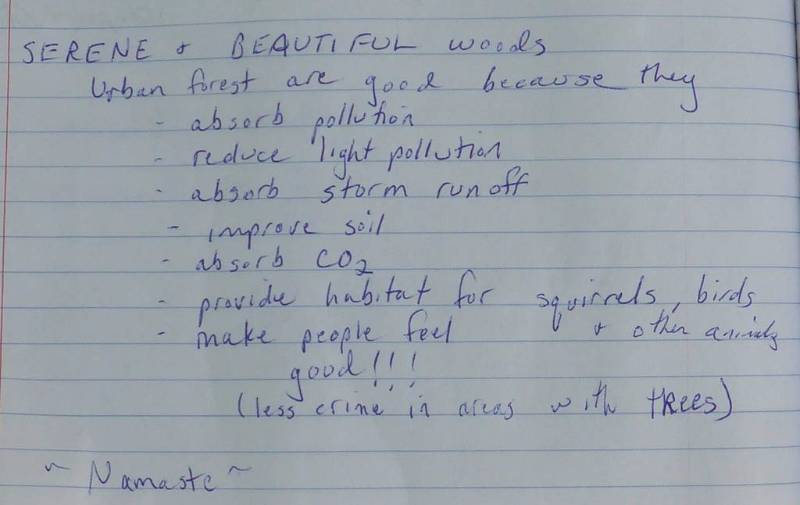 SERENE + BEAUTIFUL woods
Urban forest are good because they
- absorb pollution
- reduce light pollution
- absorb storm runoff
- improve soil
- absorb CO2
- provide habitat for squirrels, birds
+ other animals
- make people feel
good!!!
(less crime in areas with TREES)
~ Namaste ~